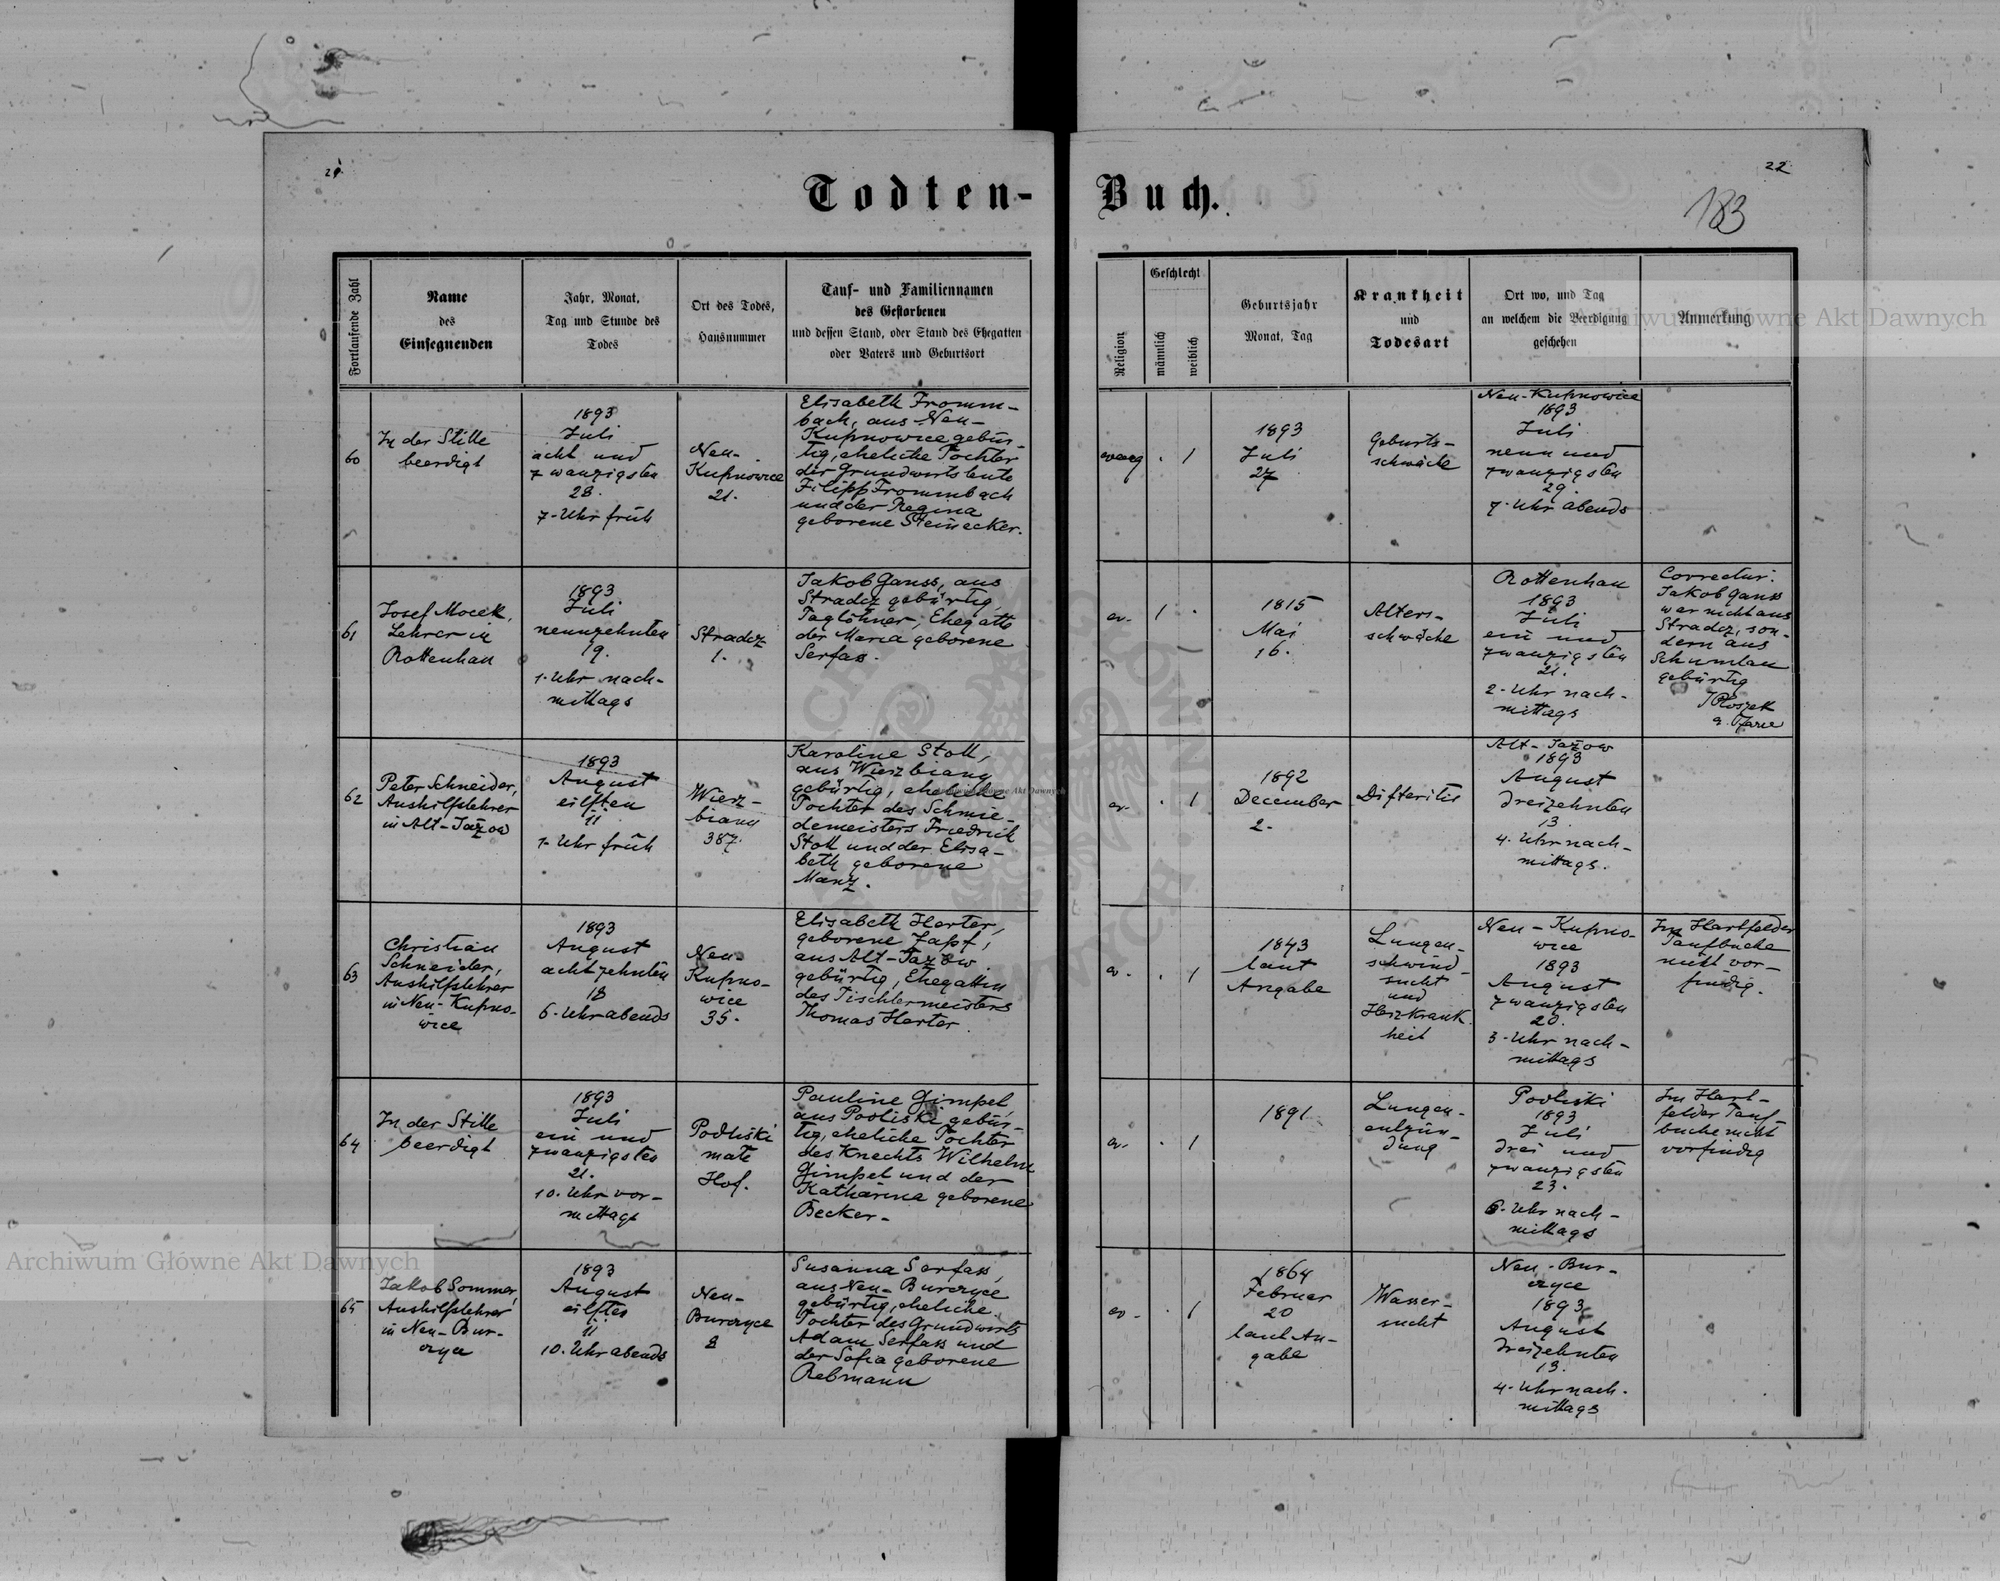 21.
22
Todten-Buch.
183
Fortlaufende Zahl
Name
des
Einsegnenden
Jahr, Monat,
Tag und Stunde des
Todes
Ort des Todes,
Hausnummer
Tauf- und Familiennamen
des Gestorbenen
und dessen Stand, oder Stand des Ehegatten
oder Vaters und Geburtsort
Religion
Geschlecht
männlich
weiblich
Geburtsjahr
Monat, Tag
Krankheit
und
Todesart
Ort wo, und Tag
an welchem die Beerdigung
geschehen
Anmerkung
60
In der Stille
beerdigt
1893
Juli
acht und
zwanzigsten
28.
7. Uhr früh
Neu-
Kupnowice
21.
Elisabeth Fromm-
bach, aus Neu-
Kupnowice gebür-
tig, eheliche Tochter
der Grundwirtsleute
Filipp Frommbach
und der Regina
geborene Steinecker.
evang
. 1
1893
Juli
27
Geburts-
schwäche
Neu-Kupnowice
1893
Juli
neun und
zwanzigsten
29.
7. Uhr abends
61
Josef Mocek,
Lehrer in
Rottenhan
1893
Juli
neunzehnten
19.
1. Uhr nach-
mittags
Stradcz
1.
Jakob Ganss, aus
Stradcz gebürtig,
Taglöhner, Ehegatte
der Maria geborene
Serfas.
ev.
1 .
1815
Mai
16.
Alters-
schwäche
Rottenhan
1893
Juli
ein und
zwanzigsten
21.
2. Uhr nach-
mittags
Correctur:
Jakob Ganss
war nicht aus
Stradcz, son-
dern aus
Schumlau
gebürtig
62
Peter Schneider,
Aushilfslehrer
in Alt-Jażow
1893
August
eilften
11.
1. Uhr früh
Wierz-
biany
387.
Karoline Stoll,
aus Wierzbiany
gebürtig, eheliche
Tochter des Schmie-
demeisters Friedrich
Stoll und der Elisa-
beth geborene
Manz.
ev.
. 1
1892
December
2.
Difteritis
Alt-Jażow
1893
August
dreizehnten
13.
4. Uhr nach-
mittags.
63
Christian
Schneider,
Aushilfslehrer
in Neu-Kupno-
wice
1893
August
achtzehnten
18
6. Uhr abends
Neu-
Kupno-
wice
35.
Elisabeth Harter,
geborene Zapf,
aus Alt-Jazow
gebürtig, Ehegattin
des Tischlermeisters
Thomas Harter.
ev.
. 1
1843
laut
Angabe
Lungen-
schwind-
sucht
und
Herzkrank-
heit
Neu-Kupno-
wice
1893
August
zwanzigsten
20.
3. Uhr nach-
mittags
Im Hartfelder
Taufbuche
nicht vor-
findig.
64
In der Stille
beerdigt
1893
Juli
ein und
zwanzigsten
21.
10. Uhr vor-
mittags
Podliski
małe
Hof.
Pauline Gimpel
aus Podliski gebür-
tig, eheliche Tochter
des Knechts Wilhelm
Gimpel und der
Katharina geborene
Becker.
ev.
. 1
1891
Lungen-
entzün-
dung
Podliski
1893
Juli
drei und
zwanzigsten
23.
6. Uhr nach-
mittags
Im Hart-
felder Tauf-
buche nicht
vorfindig
65
Jakob Sommer,
Aushilfslehrer
in Neu-Bur-
czyce
1893
August
eilften
11
10. Uhr abends
Neu-
Burczyce
8
Susanna Serfass,
aus Neu-Burczyce
gebürtig, eheliche
Tochter des Grundwirts
Adam Serfass und
der Sofia geborene
Rebmann
ev.
. 1
1864
Februar
20
laut An-
gabe
Wasser-
sucht
Neu-Bur-
czyce
1893
August
dreizehnten
13.
4. Uhr nach-
mittags
Archiwum Główne Akt Dawnych
Archiwum Główne Akt Dawnych
Archiwum Główne Akt Dawnych